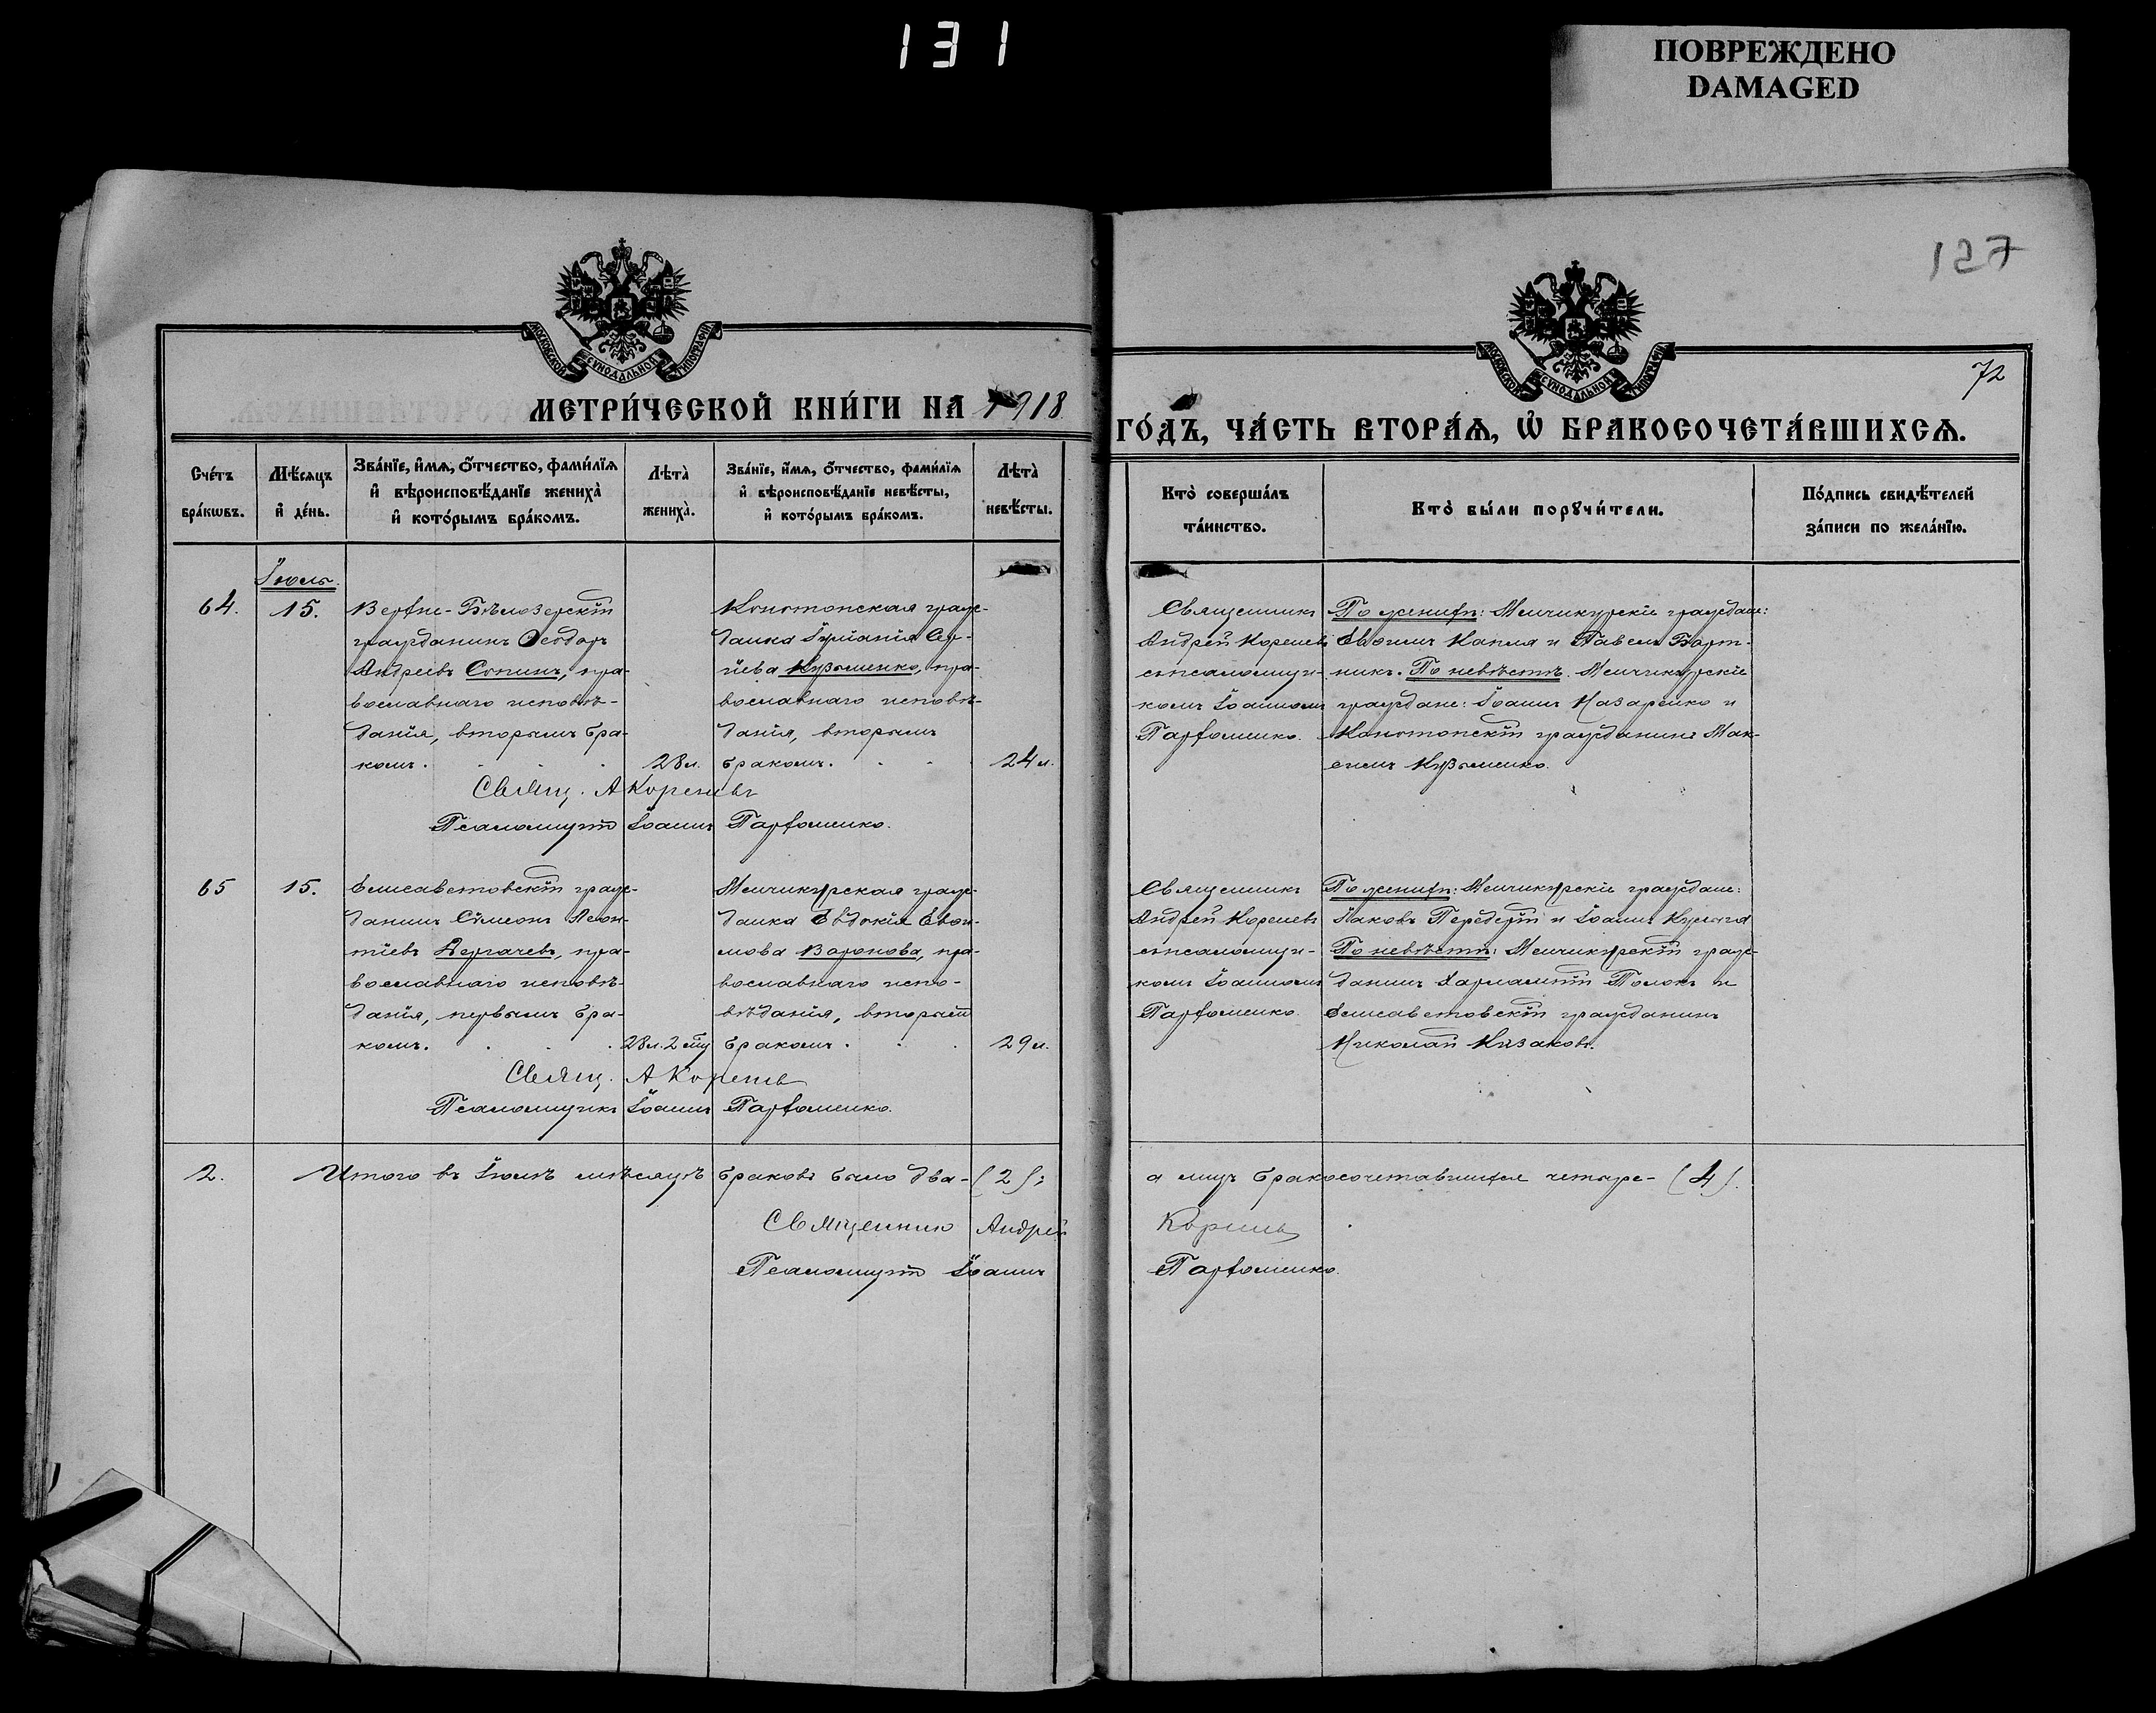 131
ПОВРЕЖДЕНО
DAMAGED
127
МОСКОВСКОЙ СѴНОДАЛЬНОЙ ТИПОГРАФІИ
МОСКОВСКОЙ СѴНОДАЛЬНОЙ ТИПОГРАФІИ
72
МЕТРИ́ЧЕСКОЙ КНИ́ГИ НА 1918
ГО́ДЪ, ЧА́СТЬ ВТОРА́Ѧ, Ѡ҆ БРАКОСОЧЕТА́ВШИХСѦ.
Сче́тъ
бра́кѡвъ.
Мѣ́сѧцъ
и҆ де́нь.
Зва́нїе, и҆́мѧ, ѻ҆́тчество, фами́лїѧ
и҆ вѣроисповѣ́данїе жениха̀
и҆ кото́рымъ бра́комъ.
Лѣта̀
жениха̀.
Зва́нїе, и҆́мѧ, ѻ҆́тчество, фами́лїѧ
и҆ вѣроисповѣ́данїе невѣ́сты,
и҆ кото́рымъ бра́комъ.
Лѣта̀
невѣ́сты.
Кто̀ соверша́лъ
та́инство.
Кто̀ бы́ли порꙋчи́тели.
По́дпись свидѣ́телей
за́писи по жела́нїю.
Іюль.
64.
15.
Верхне-Бѣлозерскій
гражданинъ Ѳеодоръ
Андреевъ Сопинъ, пра-
вославнаго исповѣ-
данія, вторымъ бра-
комъ.
28 л.
Конотопская граж-
данка Іуліанія Сер-
гіева Кузьменко, пра-
вославнаго исповѣ-
данія, вторымъ
бракомъ.
24 л.
Священникъ
Андрей Кореневъ
съ псаломщи-
комъ Іоанномъ
Пархоменко.
По женихѣ: Менчикурскіе граждане:
Евѳимъ Капля и Павелъ Борт-
никъ. По невѣстѣ. Менчикурскіе
граждане: Іоаннъ Назаренко и
Конотопскій гражданинъ Мак-
симъ Кузьменко.
Свящ. А Кореневъ
Псаломщикъ Іоаннъ Пархоменко.
65
15.
Елисаветовскій граж-
данинъ Сѵмеонъ Леон-
тіевъ Дергачевъ, пра-
вославнаго исповѣ-
данія, первымъ бра-
комъ.
28 л. 2
Менчикурская граж-
данка Евдокія Евѳи-
мова Воронова, пра-
вославнаго испо-
вѣданія, вторымъ
бракомъ.
29 л.
Священникъ
Андрей Кореневъ
съ псаломщи-
комъ Іоанномъ
Пархоменко.
По женихѣ: Менчикурскіе граждане:
Іаковъ Передерій и Іоаннъ
По невѣстѣ: Менчикурскій граж-
данинъ Харлампій и
Елисаветовскій гражданинъ
Николай Казаковъ.
Свящ. А Кореневъ
Псаломщикъ Іоаннъ Пархоменко.
2.
Итого въ Іюлѣ мѣсяцѣ браковъ было два-(2);
а лицъ бракосочетавшихся четыре-(4).
Священникъ Андрей Кореневъ
Псаломщикъ Іоаннъ Пархоменко.